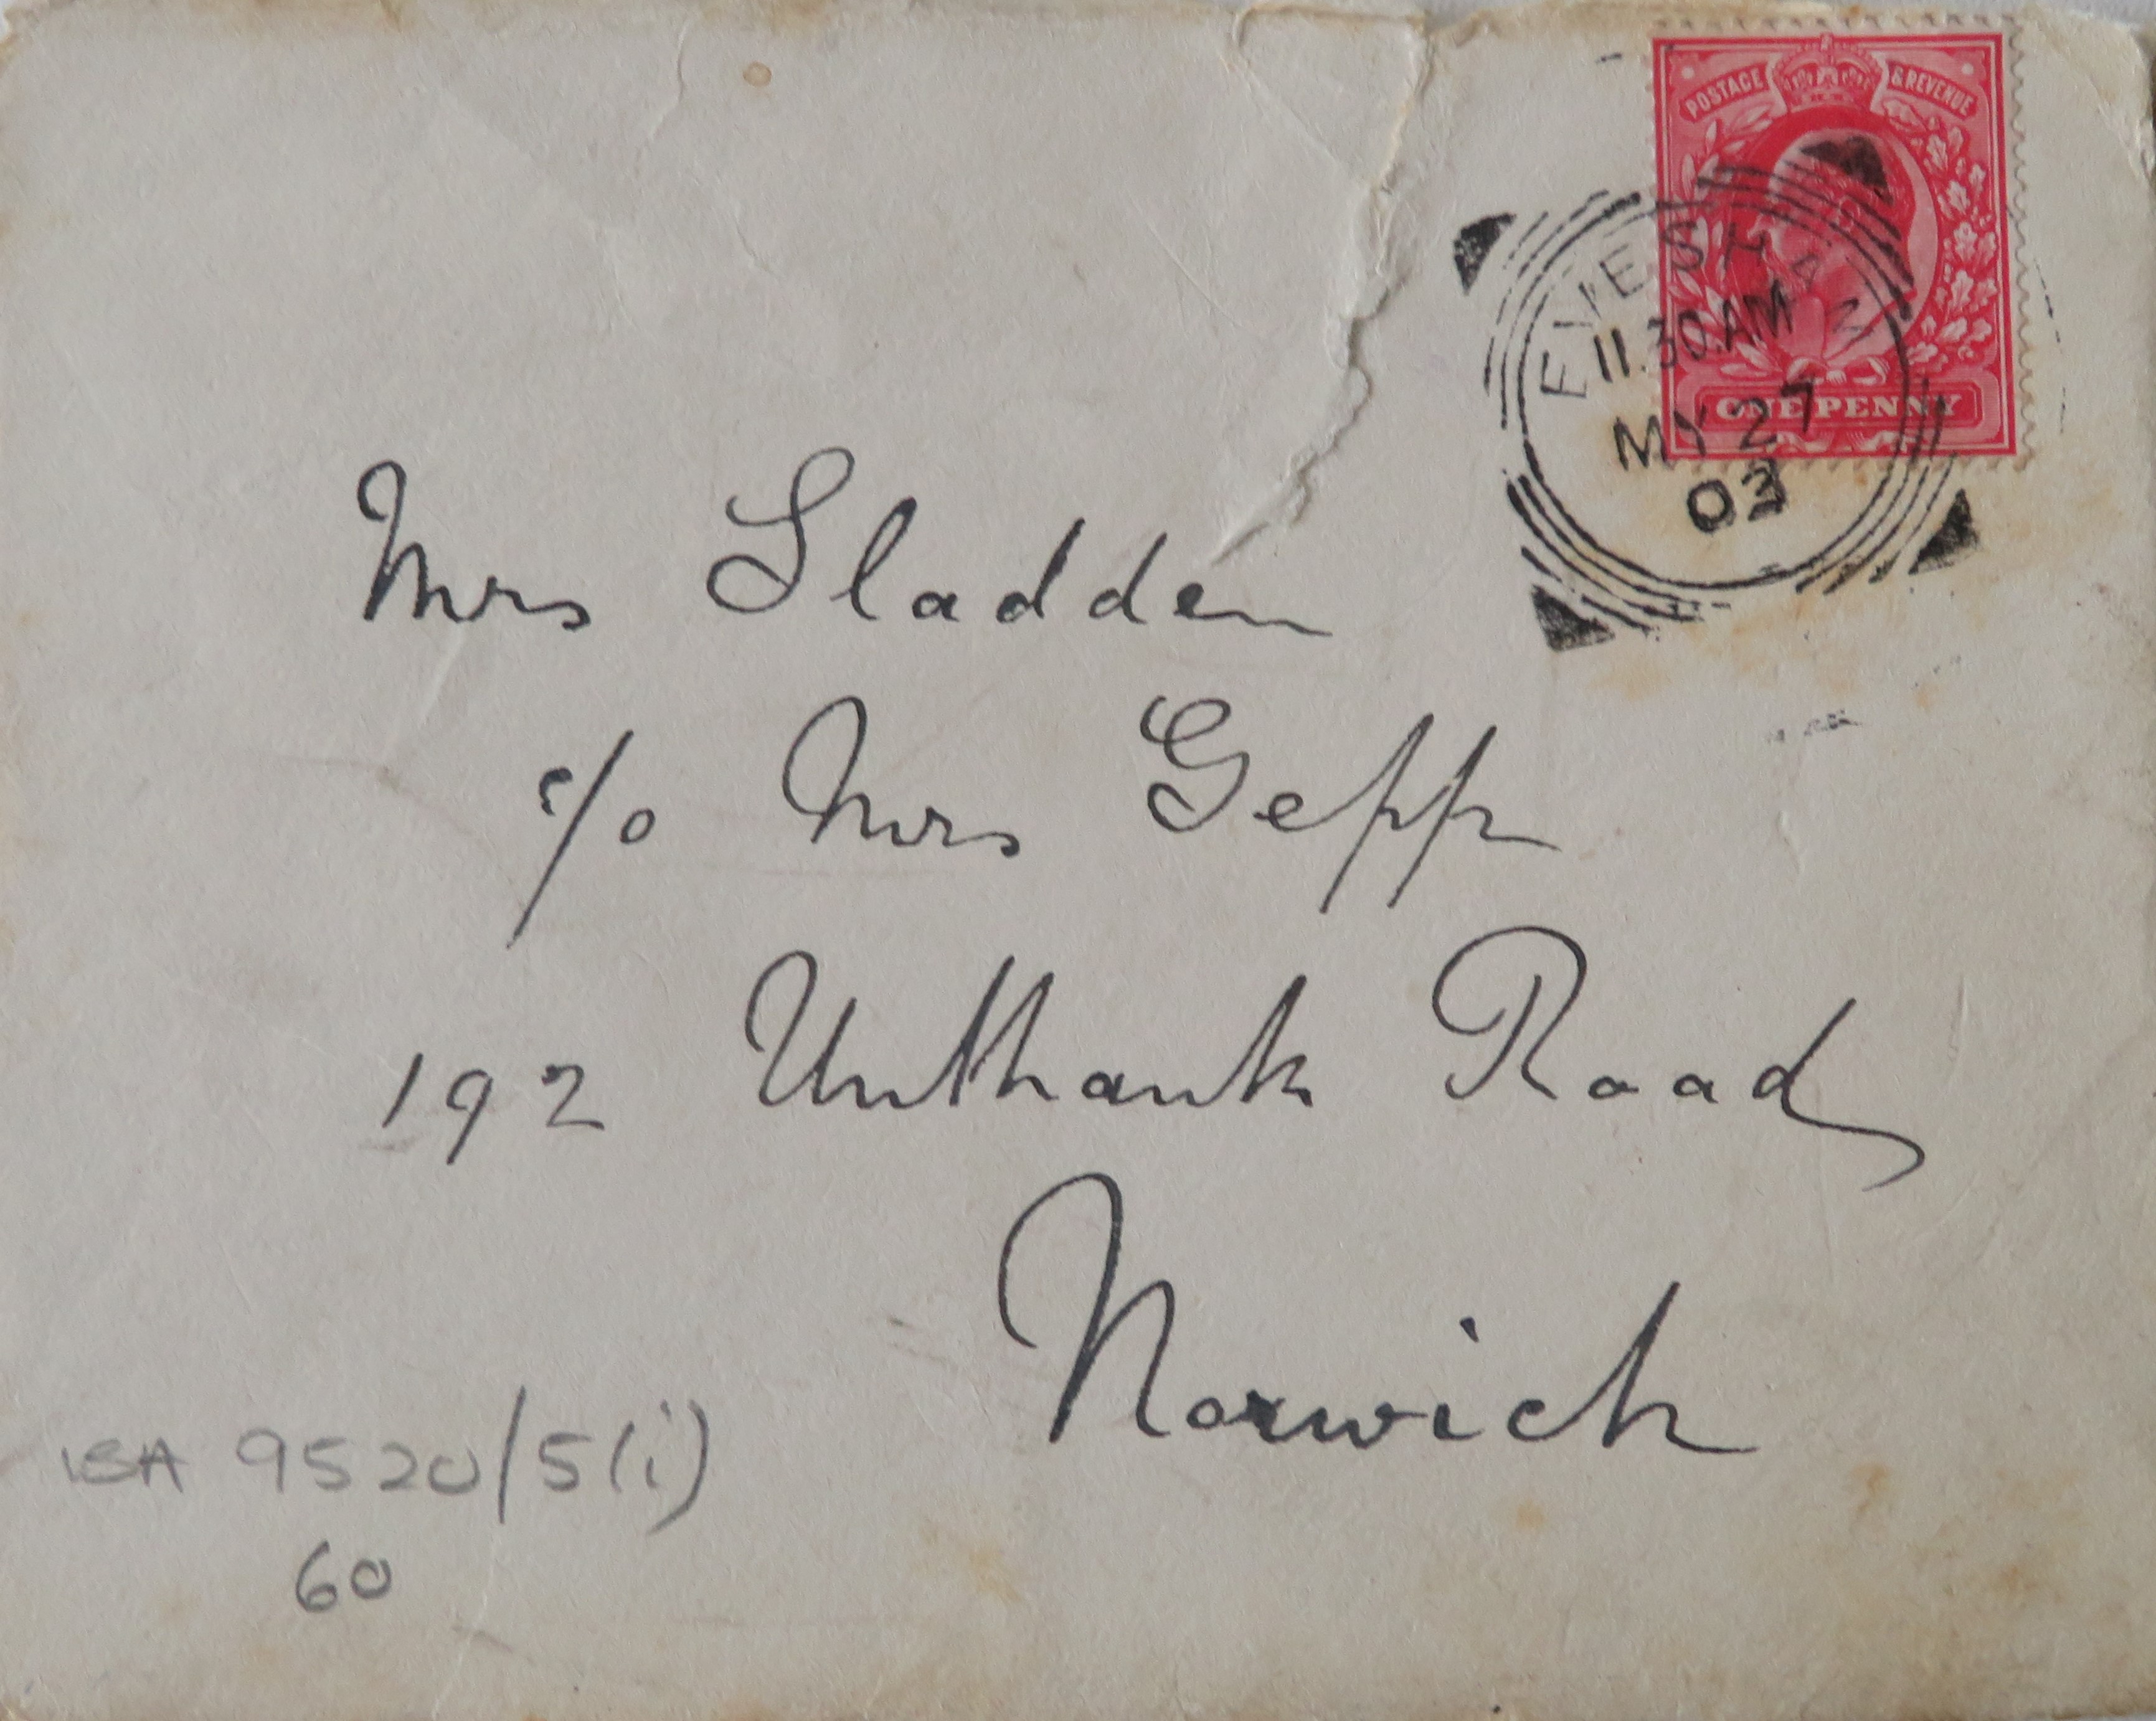 POSTAGE & REVENUE
EVESHAM
11.30.AM
MY 27
03
ONE PENNY
Mrs Sladden
c/o Mrs Gepp
192 Unthank Road
Norwich
BA 9520/5(i)
60